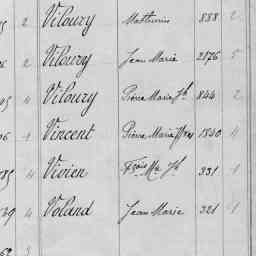 2 Viloury Mathurin 888 2
2 Viloury Jean Marie 2876 5
4 Viloury Pierre Marie Jh 844 2
1 Vincent Pierre Marie 1840 4
4 Vivien Frois Mie Jh 331 1
4 Voland Jean Marie 321 1
3